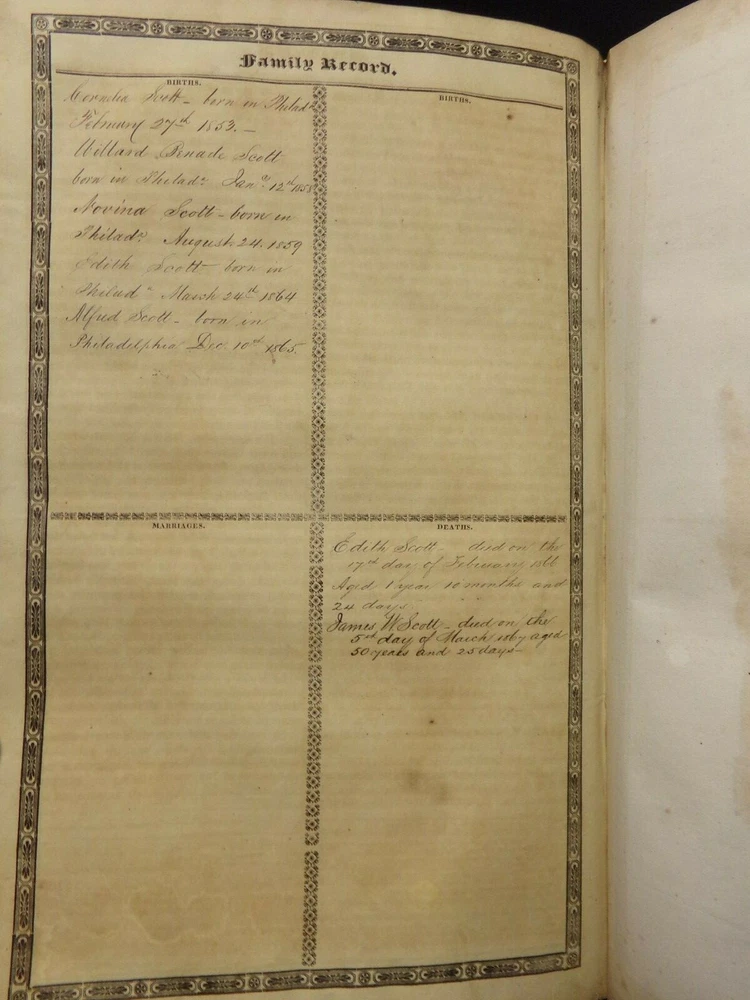 Family Record.
BIRTHS.
Cornelia Scott – born in Philada
February 27th 1853. –
Willard Benade Scott
born in Philada. Jany. 12th 1858
Novina Scott – born in
Philada. August 24. 1859
Edith Scott born in
Philada March 24th 1864
Alfred Scott – born in
Philadelphia Dec. 10th 1865.
BIRTHS.
MARRIAGES.
DEATHS.
Edith Scott – died on the
17th day of February 1866
Aged 1 year 10 months and
24 days.
James W Scott – died on the
5th day of March 1867 aged
50 years and 25 days –